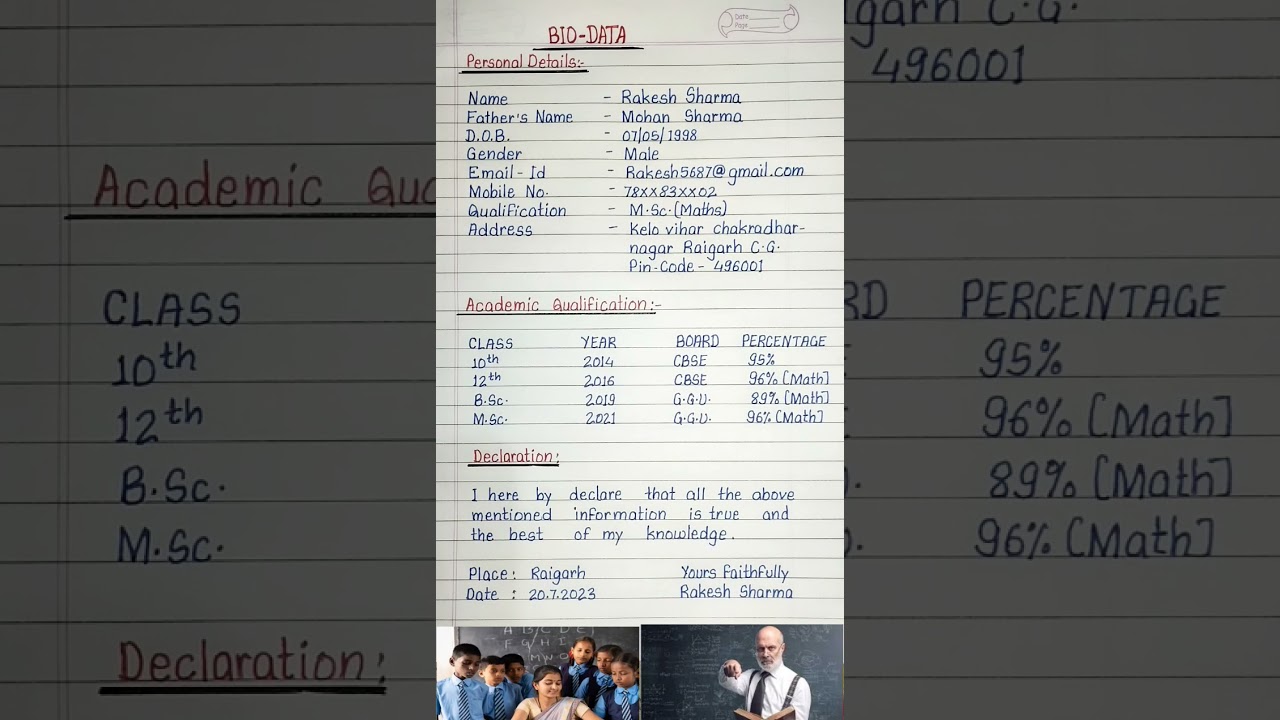 BIO-DATA
Date
Page
Personal Details:-
Name - Rakesh Sharma
Father's Name - Mohan Sharma
D.O.B. - 07/05/1998
Gender - Male
Email-Id - Rakesh5687@gmail.com
Mobile No. - 78xx83xx02
Qualification - M.Sc.(Maths)
Address - Kelo vihar chakradhar-
nagar Raigarh C.G.
Pin-Code - 496001
Academic Qualification:-
CLASS YEAR BOARD PERCENTAGE
10th 2014 CBSE 95%
12th 2016 CBSE 96% [Math]
B.Sc. 2019 G.G.U. 89% [Math]
M.Sc. 2021 G.G.U. 96% [Math]
Declaration:
I here by declare that all the above
mentioned information is true and
the best of my knowledge.
Place: Raigarh Yours Faithfully
Date : 20.7.2023 Rakesh Sharma
igarh C.G.
496001
Academic Qua
CLASS RD PERCENTAGE
10th 95%
12th 96% [Math]
B.Sc. 89% [Math]
M.Sc. 96% [Math]
Declaration: